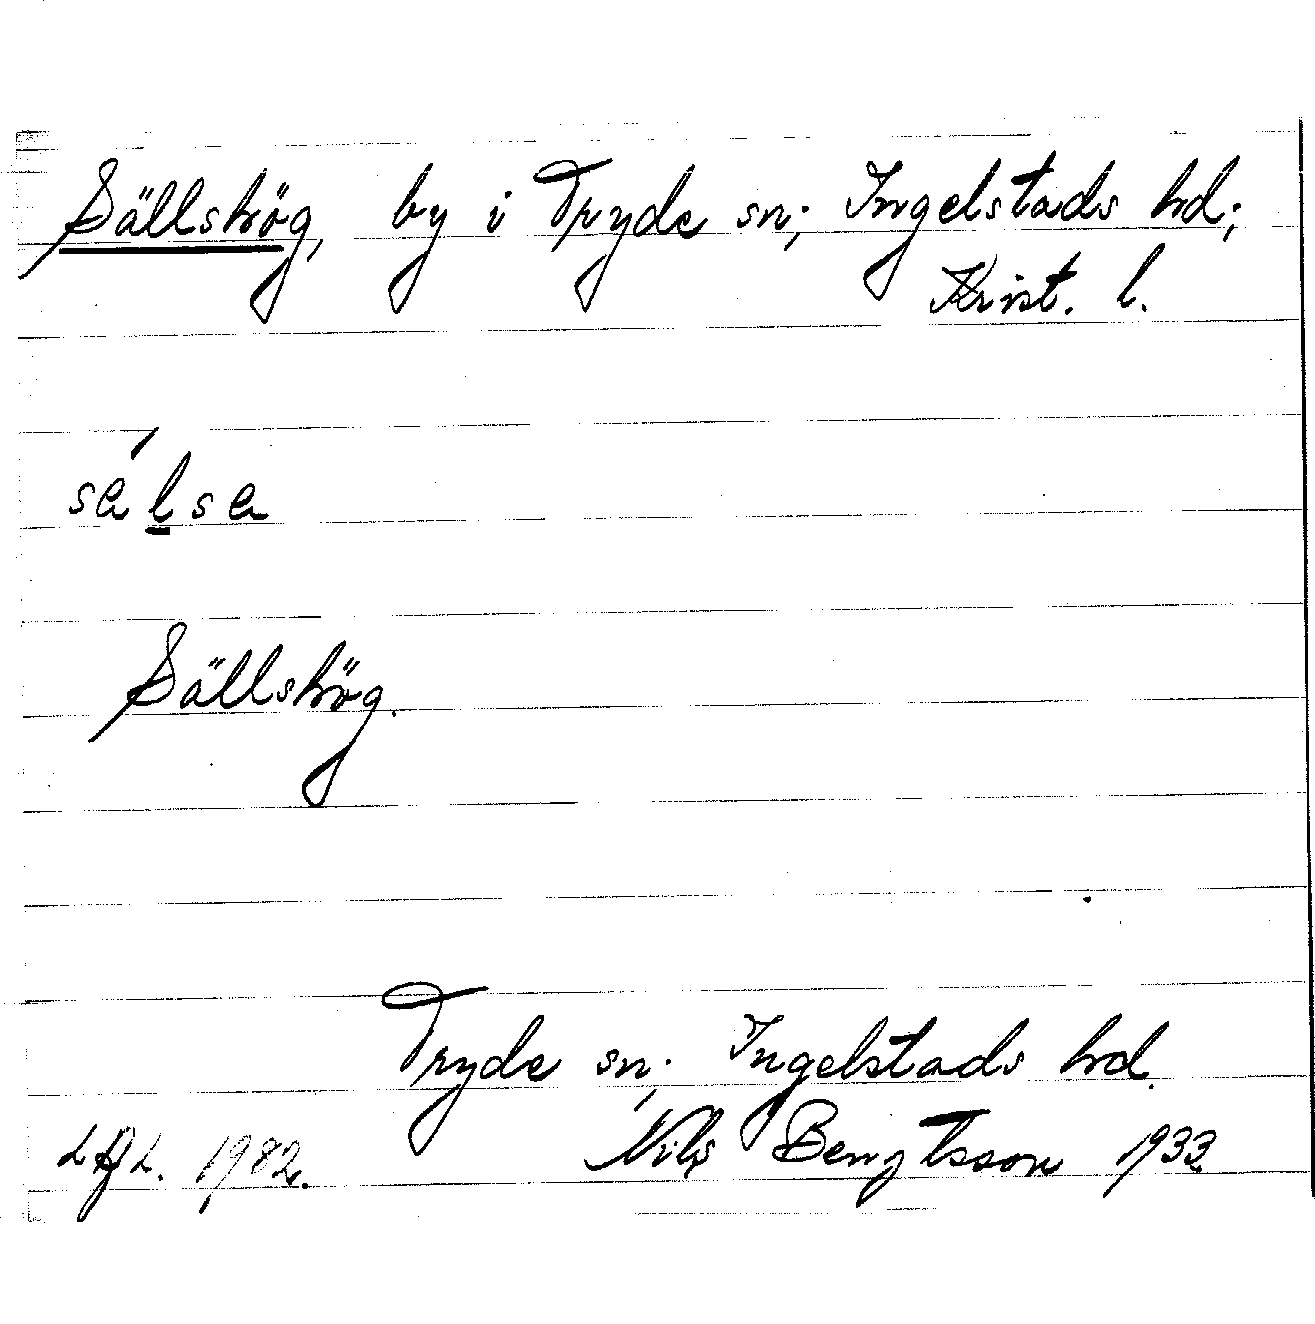 Sällshög, by i Tryde sn; Ingelstads hd;
Krist. l.
sälsa
Sällshög.
Tryde sn; Ingelstads hd.
1982. Nils Bengtsson 1933